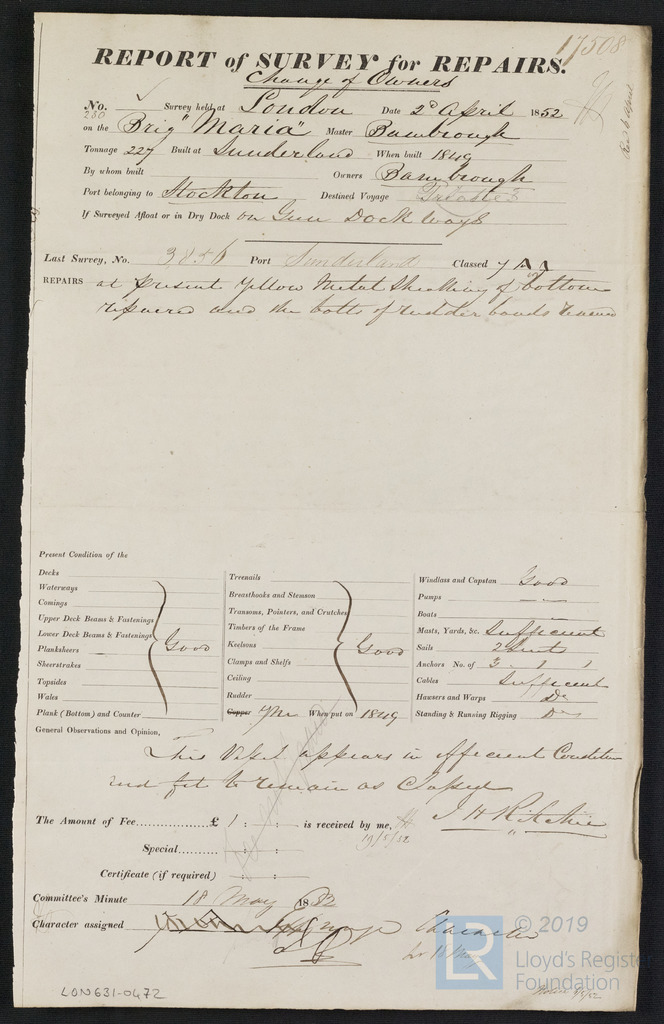 17508
REPORT of SURVEY for REPAIRS.
Change of Owners
No. 230 Survey held at London Date 2d April 1852
on the Brig "Maria" Master Bambrough
Tonnage 227 Built at Sunderland When built 1849
By whom built Owners Bambrough
Port belonging to Stockton Destined Voyage
If Surveyed Afloat or in Dry Dock on Gun Dock ways
Last Survey, No. 3856 Port Sunderland Classed 7 A
REPAIRS at present Yellow Metal Sheathing of bottom
repaired and the bolts of rudder bands renewed
Present Condition of the
Decks
Waterways
Comings
Upper Deck Beams & Fastenings
Lower Deck Beams & Fastenings
Good
Planksheers
Sheerstrakes
Topsides
Wales
Plank (Bottom) and Counter
Treenails
Breasthooks and Stemson
Transoms, Pointers, and Crutches
Timbers of the Frame
Keelsons
Good
Clamps and Shelfs
Ceiling
Rudder
Copper YM When put on 1849
Windlass and Capstan Good
Pumps
Boats
Masts, Yards, &c. Sufficient
Sails 2 Suits
Anchors No. of 3
Cables Sufficient
Hawsers and Warps Do
Standing & Running Rigging Do
General Observations and Opinion,
This Vessel appears in efficient Condition
and fit to remain as Classed
The Amount of Fee £ 1 : : is received by me,
J H Ritchie
19/5/52
Special : :
Certificate (if required) : :
Committee's Minute 18 May 1852
Character assigned
Character
LON631-0472
© 2019
LR
Lloyd's Register
Foundation